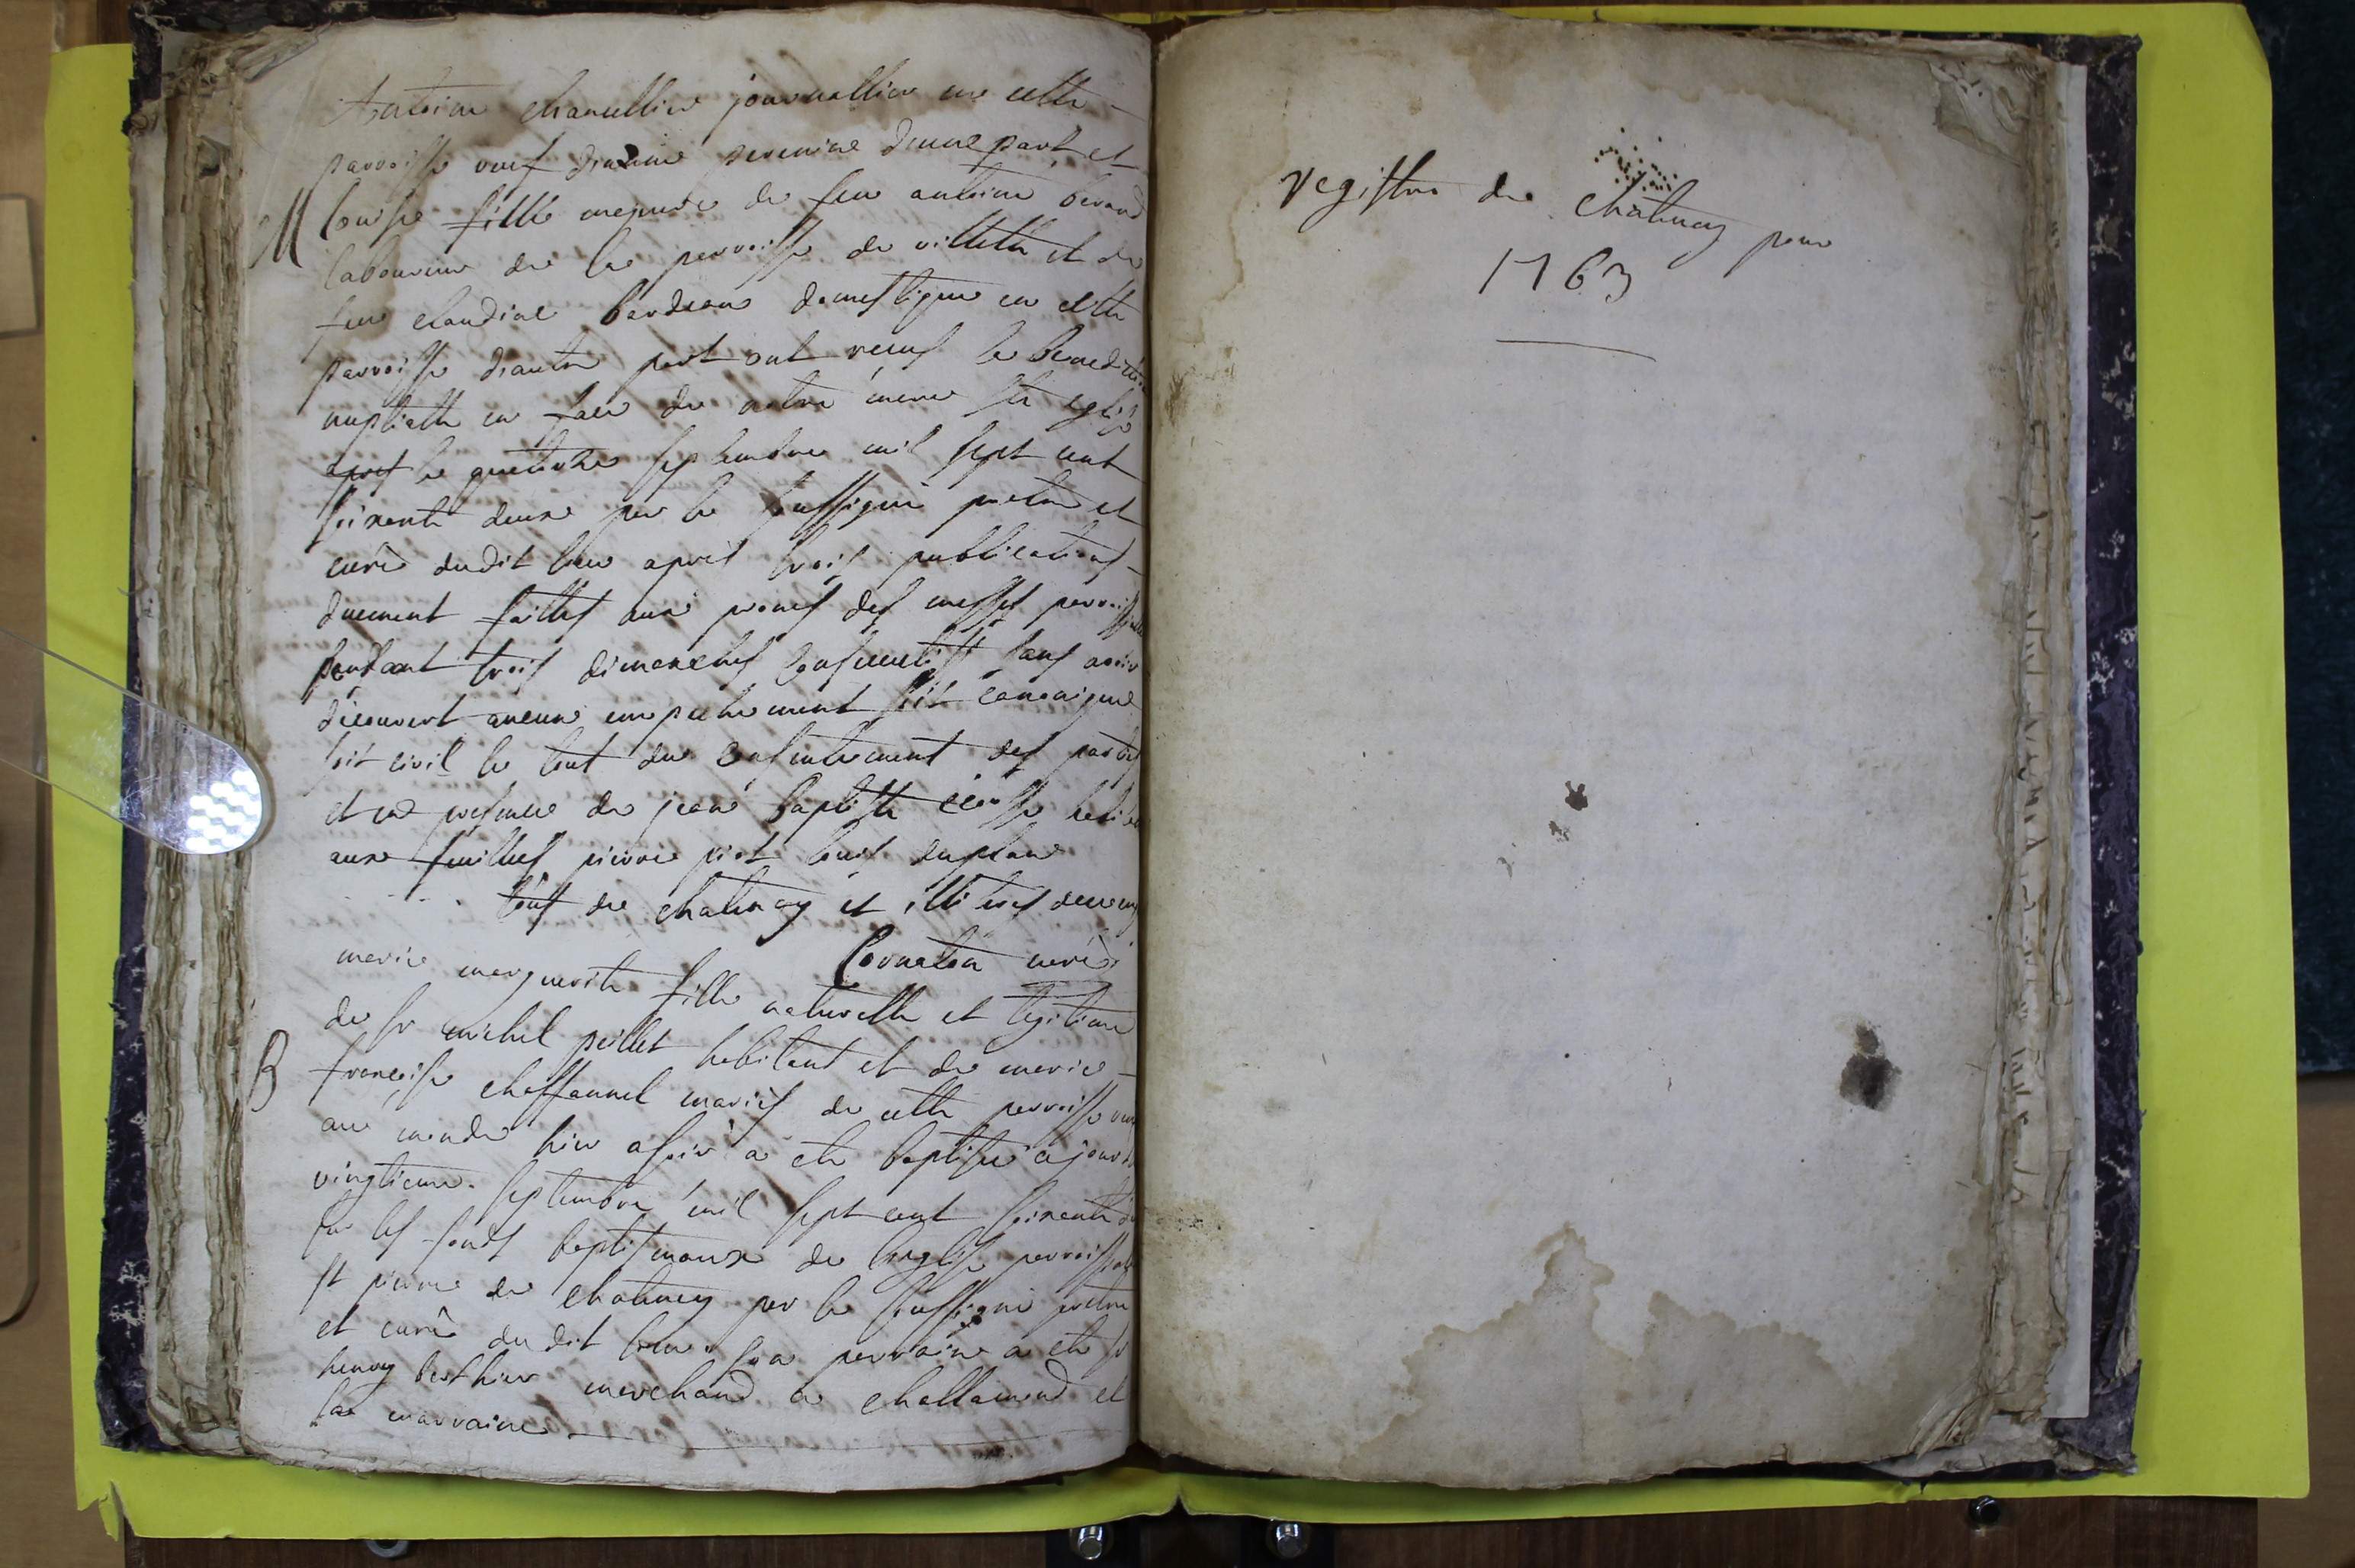 Antoine chanellier journallier en cette
parroisse veuf d'une part et
M
Louise fille mejeure de feu antoine beraud
laboureur de la perroisse de villette et de
feue claudine berdeau domestique en cette
parroisse d'autre part ont receus la benediction
nuptialle en face de notre mere ste eglise
le quatorze septembre mil sept cent
soixante deux par le soussigné pretre et
curé dudit lieu aprés trois publications
duement faittes aux prones des messes perroissialles
pendant trois dimanches consecutifs sans avoir
découvert aucun empechement soit canonique
soit civil le tout du consentement des parties
et en presence de jean baptiste
aux feuilles pierre piot louis duplan
tous de chatenay et illiteres
Cornaton curé
marie marguerite fille naturelle et legitime
de sr michel peillet habitant et de marie
B
francoise cheffannel mariés de cette perroisse
au monde hier a soir a eté baptisée
vingtieme septembre mil sept cent soixante
sur les fonds baptismaux de l'eglise perroissialle
st pierre de chatenay par le soussigné pretre
et curé du dit lieu son perrain a eté sr
henry berthier merchand a challamond et
la marraine
registre de chatenay pour
1763